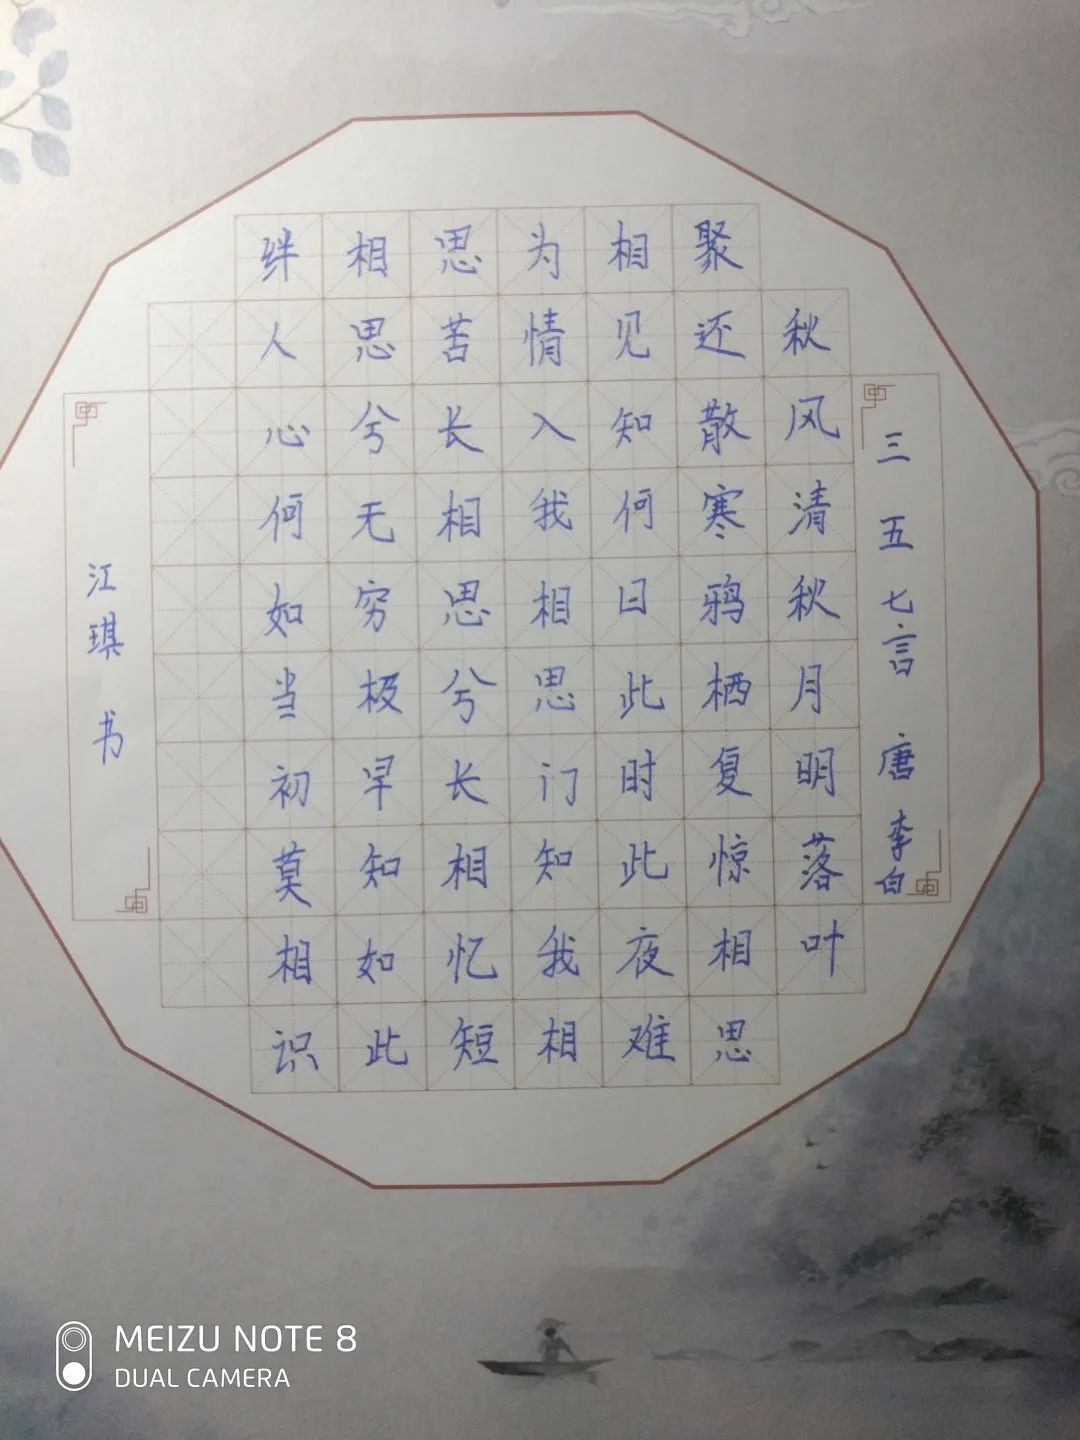 三五七言 唐 李白
秋风清秋月明落叶
聚还散寒鸦栖复惊相思
相见知何日此时此夜难
为情入我相思门知我相
思苦长相思兮长相忆短
相思兮无穷极早知如此
绊人心何如当初莫相识
江琪书
MEIZU NOTE 8
DUAL CAMERA